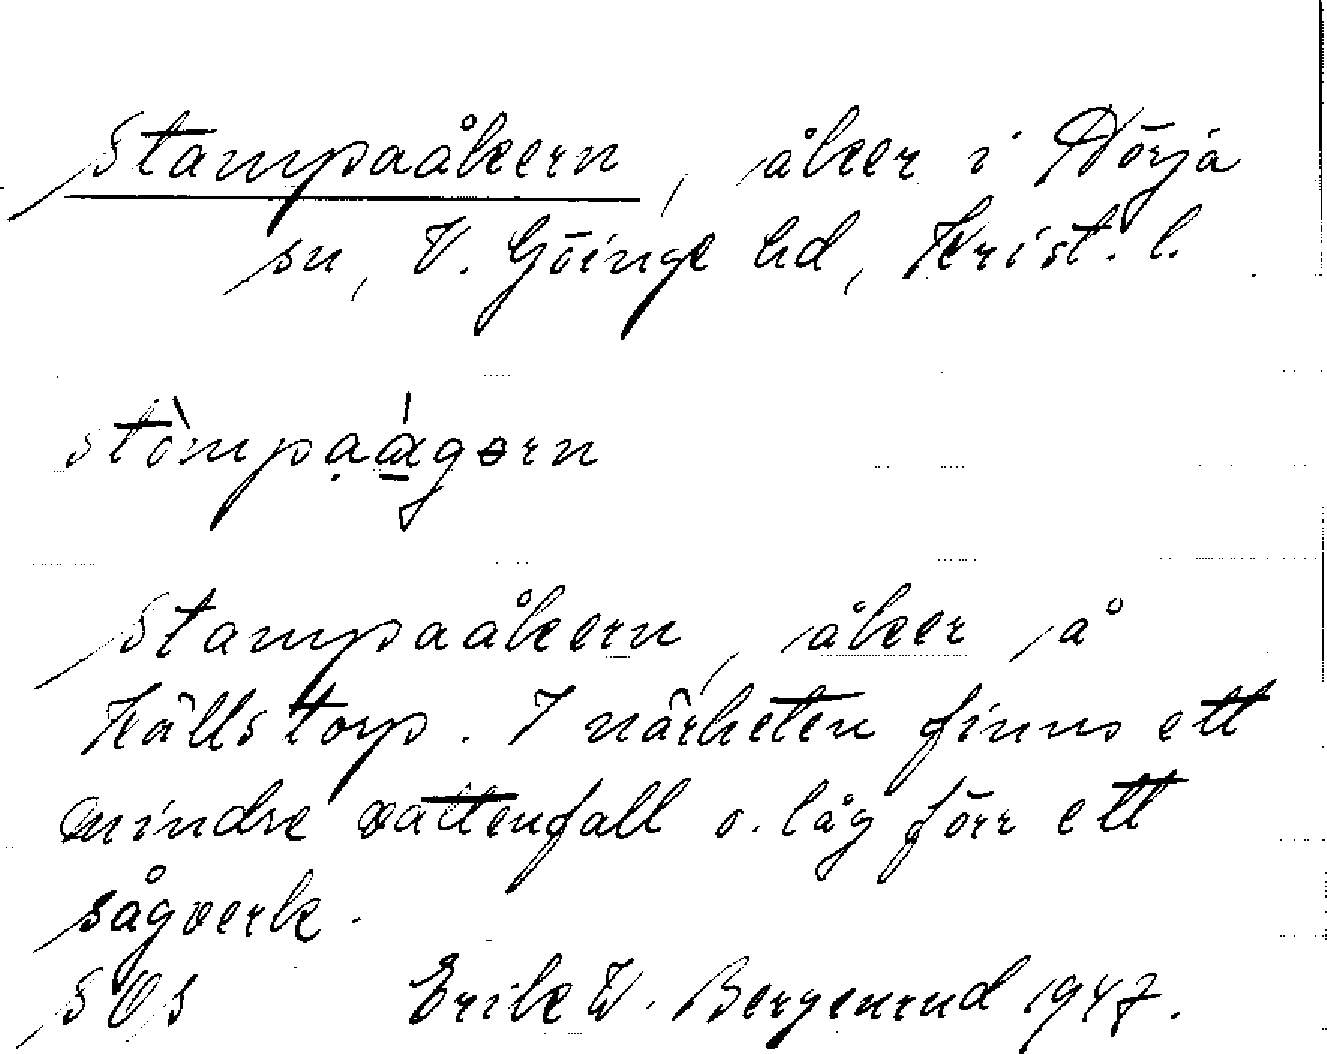 Stampaåkern, åker i Nörja
sn, V. Göinge hd, Krist. l.
stòmpạágərn
Stampaåkern, åker å
Källstorp. I närheten finns ett
mindre vattenfall o. låg förr ett
sågverk.
SOS Erik W. Bergenrud 1947.